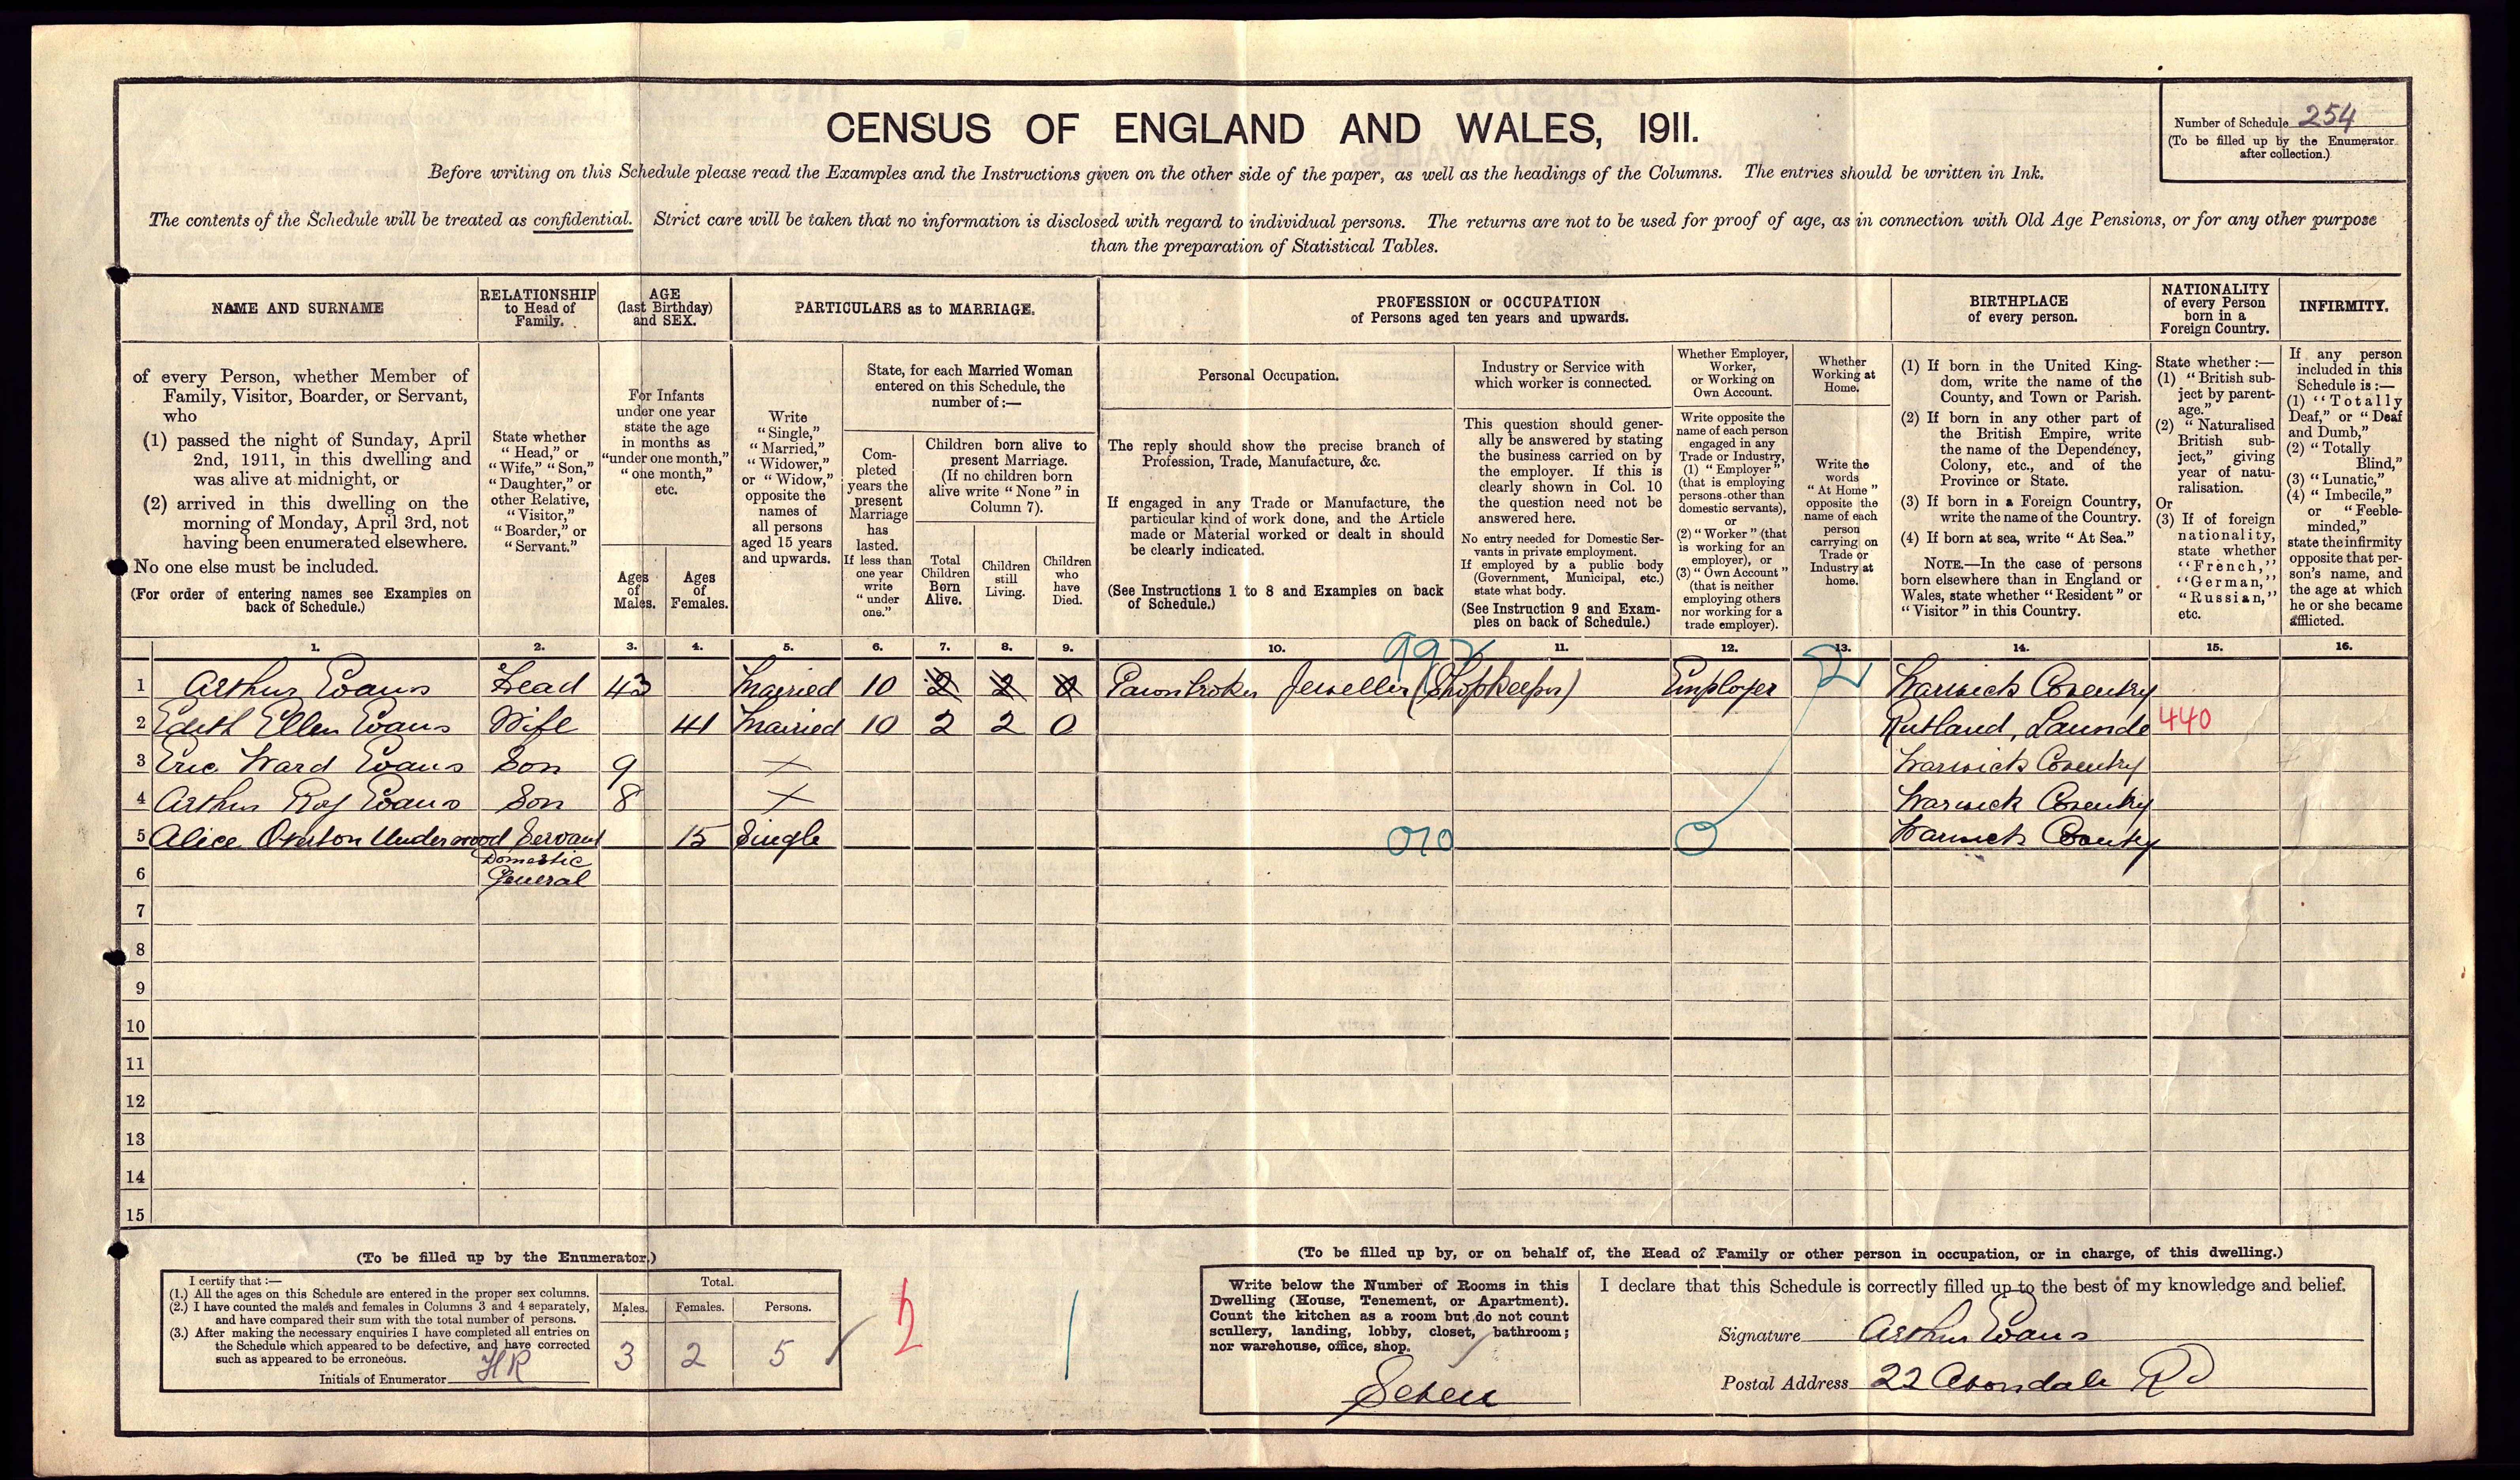 CENSUS OF ENGLAND AND WALES, 1911.
Number of Schedule 254
(To be filled up by the Enumerator
after collection.)
Before writing on this Schedule please read the Examples and the Instructions given on the other side of the paper, as well as the headings of the Columns. The entries should be written in Ink.
The contents of the Schedule will be treated as confidential. Strict care will be taken that no information is disclosed with regard to individual persons. The returns are not to be used for proof of age, as in connection with Old Age Pensions, or for any other purpose
than the preparation of Statistical Tables.
NAME AND SURNAME
of every Person, whether Member of
Family, Visitor, Boarder, or Servant,
who
(1) passed the night of Sunday, April
2nd, 1911, in this dwelling and
was alive at midnight, or
(2) arrived in this dwelling on the
morning of Monday, April 3rd, not
having been enumerated elsewhere.
No one else must be included.
(For order of entering names see Examples on
back of Schedule.)
RELATIONSHIP
to Head of
Family.
State whether
"Head," or
"Wife," "Son,"
"Daughter," or
other Relative,
"Visitor,"
"Boarder," or
"Servant."
AGE
(last Birthday)
and SEX.
For Infants
under one year
state the age
in months as
"under one month,"
"one month,"
etc.
Ages
of
Males.
Ages
of
Females.
PARTICULARS as to MARRIAGE.
Write
"Single,"
"Married,"
"Widower,"
or "Widow,"
opposite the
names of
all persons
aged 15 years
and upwards.
State, for each Married Woman
entered on this Schedule, the
number of:—
Com-
pleted
years the
present
Marriage
has
lasted.
If less than
one year
write
"under
one."
Children born alive to
present Marriage.
(If no children born
alive write "None" in
Column 7).
Total
Children
Born
Alive.
Children
still
Living.
Children
who
have
Died.
PROFESSION or OCCUPATION
of Persons aged ten years and upwards.
Personal Occupation.
The reply should show the precise branch of
Profession, Trade, Manufacture, &c.
If engaged in any Trade or Manufacture, the
particular kind of work done, and the Article
made or Material worked or dealt in should
be clearly indicated.
(See Instructions 1 to 8 and Examples on back
of Schedule.)
Industry or Service with
which worker is connected.
This question should gener-
ally be answered by stating
the business carried on by
the employer. If this is
clearly shown in Col. 10
the question need not be
answered here.
No entry needed for Domestic Ser-
vants in private employment.
If employed by a public body
(Government, Municipal, etc.)
state what body.
(See Instruction 9 and Exam-
ples on back of Schedule.)
Whether Employer,
Worker,
or Working on
Own Account.
Write opposite the
name of each person
engaged in any
Trade or Industry,
(1) "Employer"
(that is employing
persons other than
domestic servants),
or
(2) "Worker" (that
is working for an
employer), or
(3) "Own Account"
(that is neither
employing others
nor working for a
trade employer).
Whether
Working at
Home.
Write the
words
"At Home"
opposite the
name of each
person
carrying on
Trade or
Industry at
home.
BIRTHPLACE
of every person.
(1) If born in the United King-
dom, write the name of the
County, and Town or Parish.
(2) If born in any other part of
the British Empire, write
the name of the Dependency,
Colony, etc., and of the
Province or State.
(3) If born in a Foreign Country,
write the name of the Country.
(4) If born at sea, write "At Sea."
NOTE.—In the case of persons
born elsewhere than in England or
Wales, state whether "Resident" or
"Visitor" in this Country.
NATIONALITY
of every Person
born in a
Foreign Country.
State whether:—
(1) "British sub-
ject by parent-
age."
(2) "Naturalised
British sub-
ject," giving
year of natu-
ralisation.
Or
(3) If of foreign
nationality,
state whether
"French,"
"German,"
"Russian,"
etc.
INFIRMITY.
If any person
included in this
Schedule is:—
(1) "Totally
Deaf," or "Deaf
and Dumb,"
(2) "Totally
Blind,"
(3) "Lunatic,"
(4) "Imbecile,"
or "Feeble-
minded,"
state the infirmity
opposite that per-
son's name, and
the age at which
he or she became
afflicted.
1. 2. 3. 4. 5. 6. 7. 8. 9. 10. 11. 12. 13. 14. 15. 16.
1 Arthur Evans Head 43 Married 10 2 2 0 Pawnbroker Jeweller (Shopkeeper) 997 Employer 2 Warwick Coventry
2 Edith Ellen Evans Wife 41 Married 10 2 2 0 Rutland, Launde 440
3 Eric Ward Evans Son 9 Warwick Coventry
4 Arthur Roy Evans Son 8 Warwick Coventry
5 Alice Overton Underwood Servant 15 Single 070 0 Warwick Coventry
Domestic
6 General
7
8
9
10
11
12
13
14
15
(To be filled up by the Enumerator.)
I certify that:—
(1.) All the ages on this Schedule are entered in the proper sex columns.
(2.) I have counted the males and females in Columns 3 and 4 separately,
and have compared their sum with the total number of persons.
(3.) After making the necessary enquiries I have completed all entries on
the Schedule which appeared to be defective, and have corrected
such as appeared to be erroneous.
Initials of Enumerator HR
Total.
Males. Females. Persons.
3 2 5
2
1
(To be filled up by, or on behalf of, the Head of Family or other person in occupation, or in charge, of this dwelling.)
Write below the Number of Rooms in this
Dwelling (House, Tenement, or Apartment).
Count the kitchen as a room but do not count
scullery, landing, lobby, closet, bathroom;
nor warehouse, office, shop.
Seven
I declare that this Schedule is correctly filled up to the best of my knowledge and belief.
Signature Arthur Evans
Postal Address 22 Avondale Rd